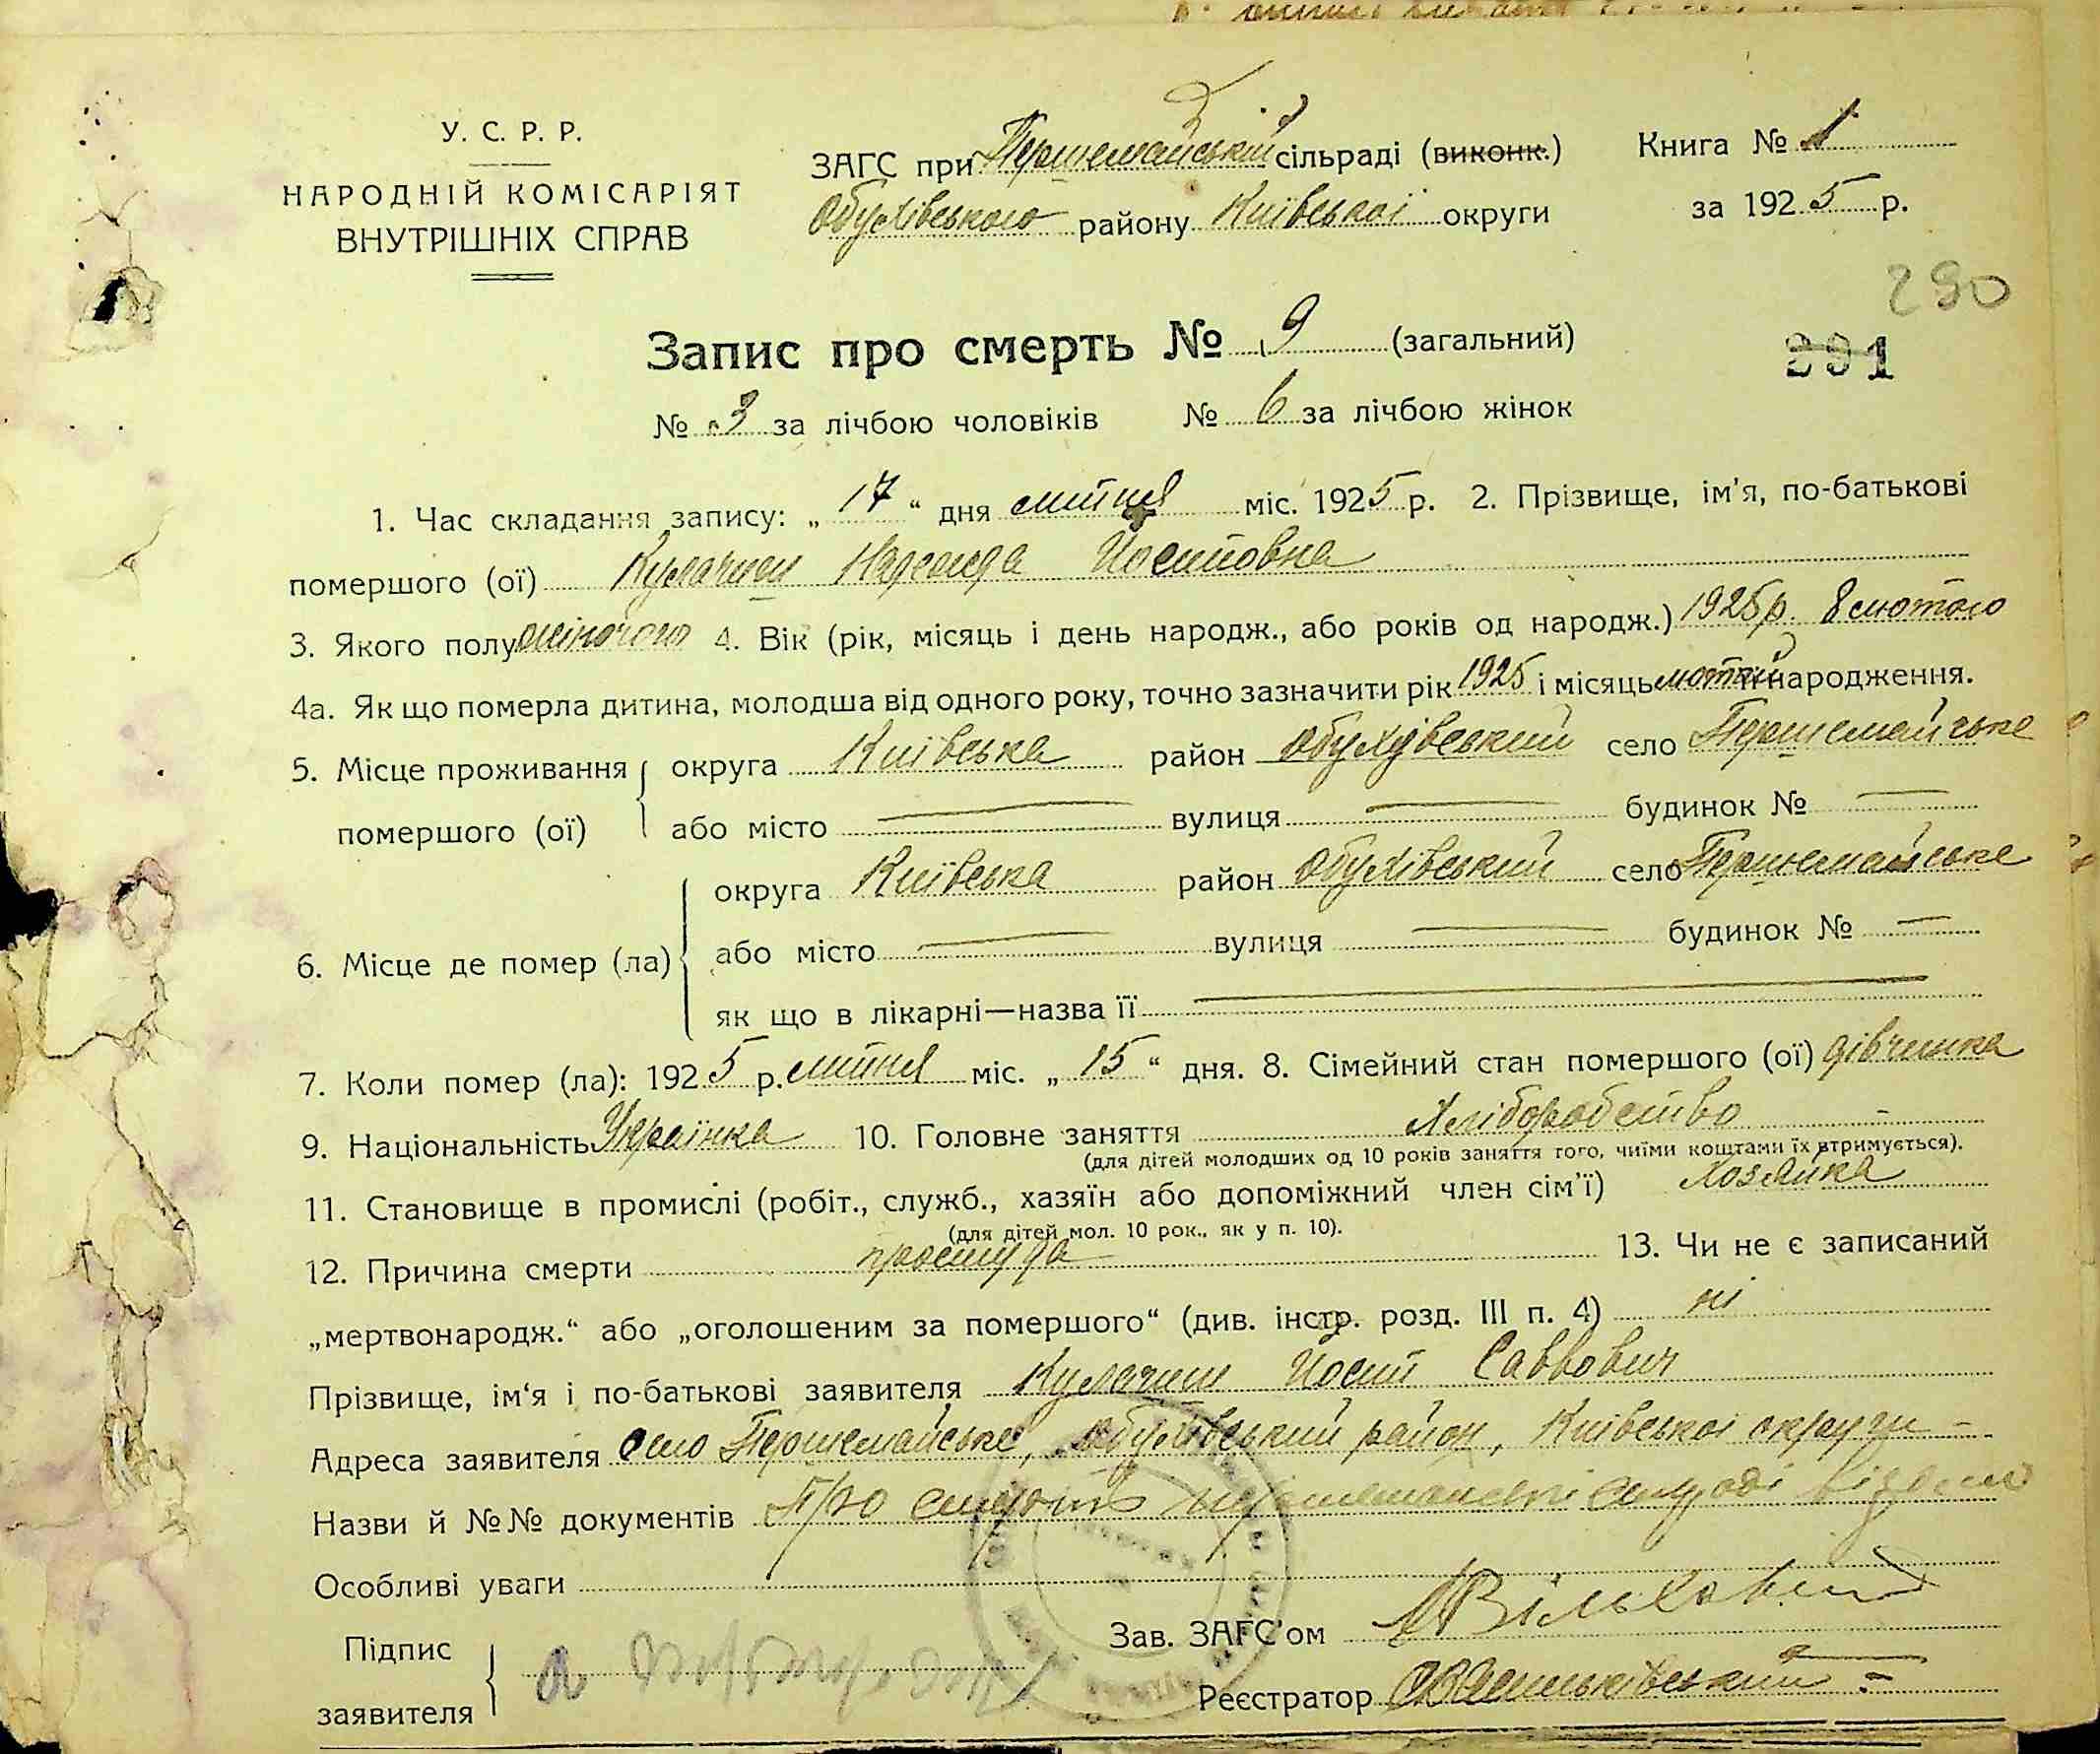 У. С. Р. Р.
НАРОДНІЙ КОМІСАРІЯТ
ВНУТРІШНІХ СПРАВ
ЗАГС при Першемайській сільраді (виконк.)
Обухівського району Київської округи
Книга № 1
за 1925 р.
290
291
Запис про смерть № 9 (загальний)
№ 3 за лічбою чоловіків № 6 за лічбою жінок
1. Час складання запису: „17“ дня липня міс. 1925 р. 2. Прізвище, ім’я, по-батькові
помершого (ої) Надежда Йосиповна
3. Якого полу жіночого 4. Вік (рік, місяць і день народж., або років од народж.) 1925р. 8 лютого
4а. Як що померла дитина, молодша від одного року, точно зазначити рік 1925 і місяць лютий її народження.
5. Місце проживання помершого (ої) округа Київська район Обухівський село Першемайське
або місто — вулиця — будинок № —
6. Місце де помер (ла) округа Київська район Обухівський село Першемайське
або місто — вулиця — будинок № —
як що в лікарні—назва її —
7. Коли помер (ла): 1925 р. липня міс. „15“ дня. 8. Сімейний стан помершого (ої) дівчинка
9. Національність Українка 10. Головне заняття Хліборобство
(для дітей молодших од 10 років заняття того, чиїми коштами їх втримується).
11. Становище в промислі (робіт., служб., хазяїн або допоміжний член сім’ї) Хозяйка
(для дітей мол. 10 рок., як у п. 10).
12. Причина смерти простуда 13. Чи не є записаний
„мертвонародж.“ або „оголошеним за помершого“ (див. інстр. розд. III п. 4) ні
Прізвище, ім‘я і по-батькові заявителя Йосип Саввович
Адреса заявителя Село Першемайське, Обухівський район, Київської округи
Назви й №№ документів Про смерть
Особливі уваги
Підпис
заявителя
Зав. ЗАГС’ом
Реєстратор